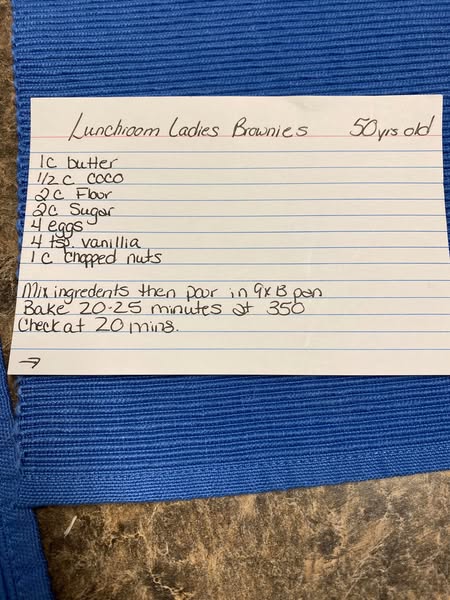 Lunchroom Ladies Brownies 50 yrs old
1 C butter
1/2 C coco
2 C Flour
2C Sugar
4 eggs
4 tsp. vanillia
1 C chopped nuts
Mix ingredents then pour in 9x13 pan
Bake 20-25 minutes at 350
Check at 20 mins.
→